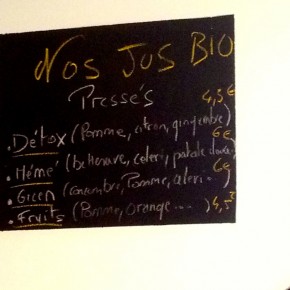 Nos Jus BIO
Pressés 4,5€
.Détox (Pomme, citron, gingembre)
6€
.Hémé (betterave, celeri, patate douce,
6€
.Green (concombre, Pomme, celeri..
.Fruits (Pomme, orange ... ) 4,5€